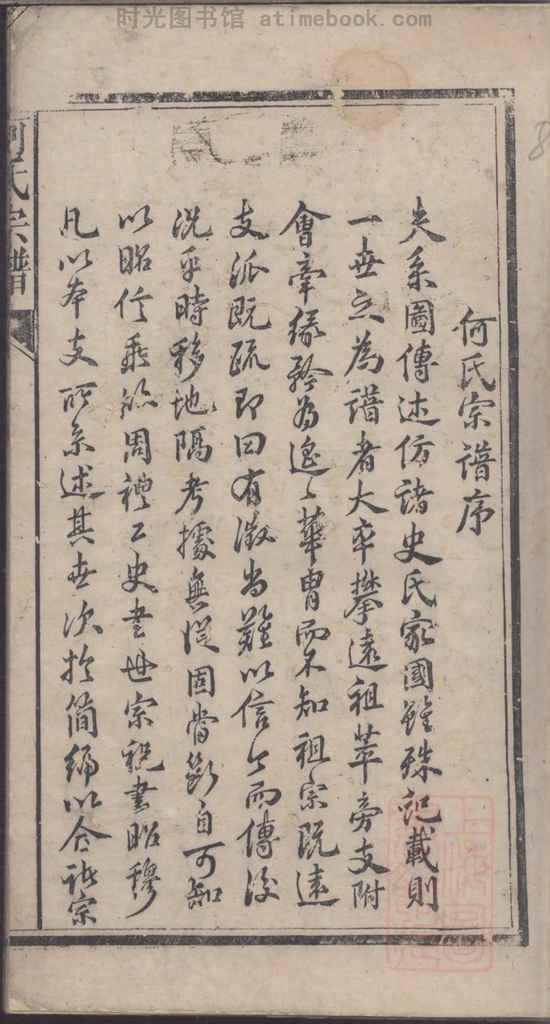 时光图书馆 - atimebook.com
何氏宗譜序
夫系圖傳述仿諸史氏家國雖殊記載則
一世之為譜者大率攀遠祖萃旁支附
會牽緣矜為遙遙華冑而不知祖宗既遠
支派既疏即曰有徵尚難以信今而傳後
況乎時移地隔考據無從固當斷自可知
以昭信乘篇周禮工史書世宗祝書昭穆
凡以本支所系述其世次於簡編以合諸宗
氏宗譜